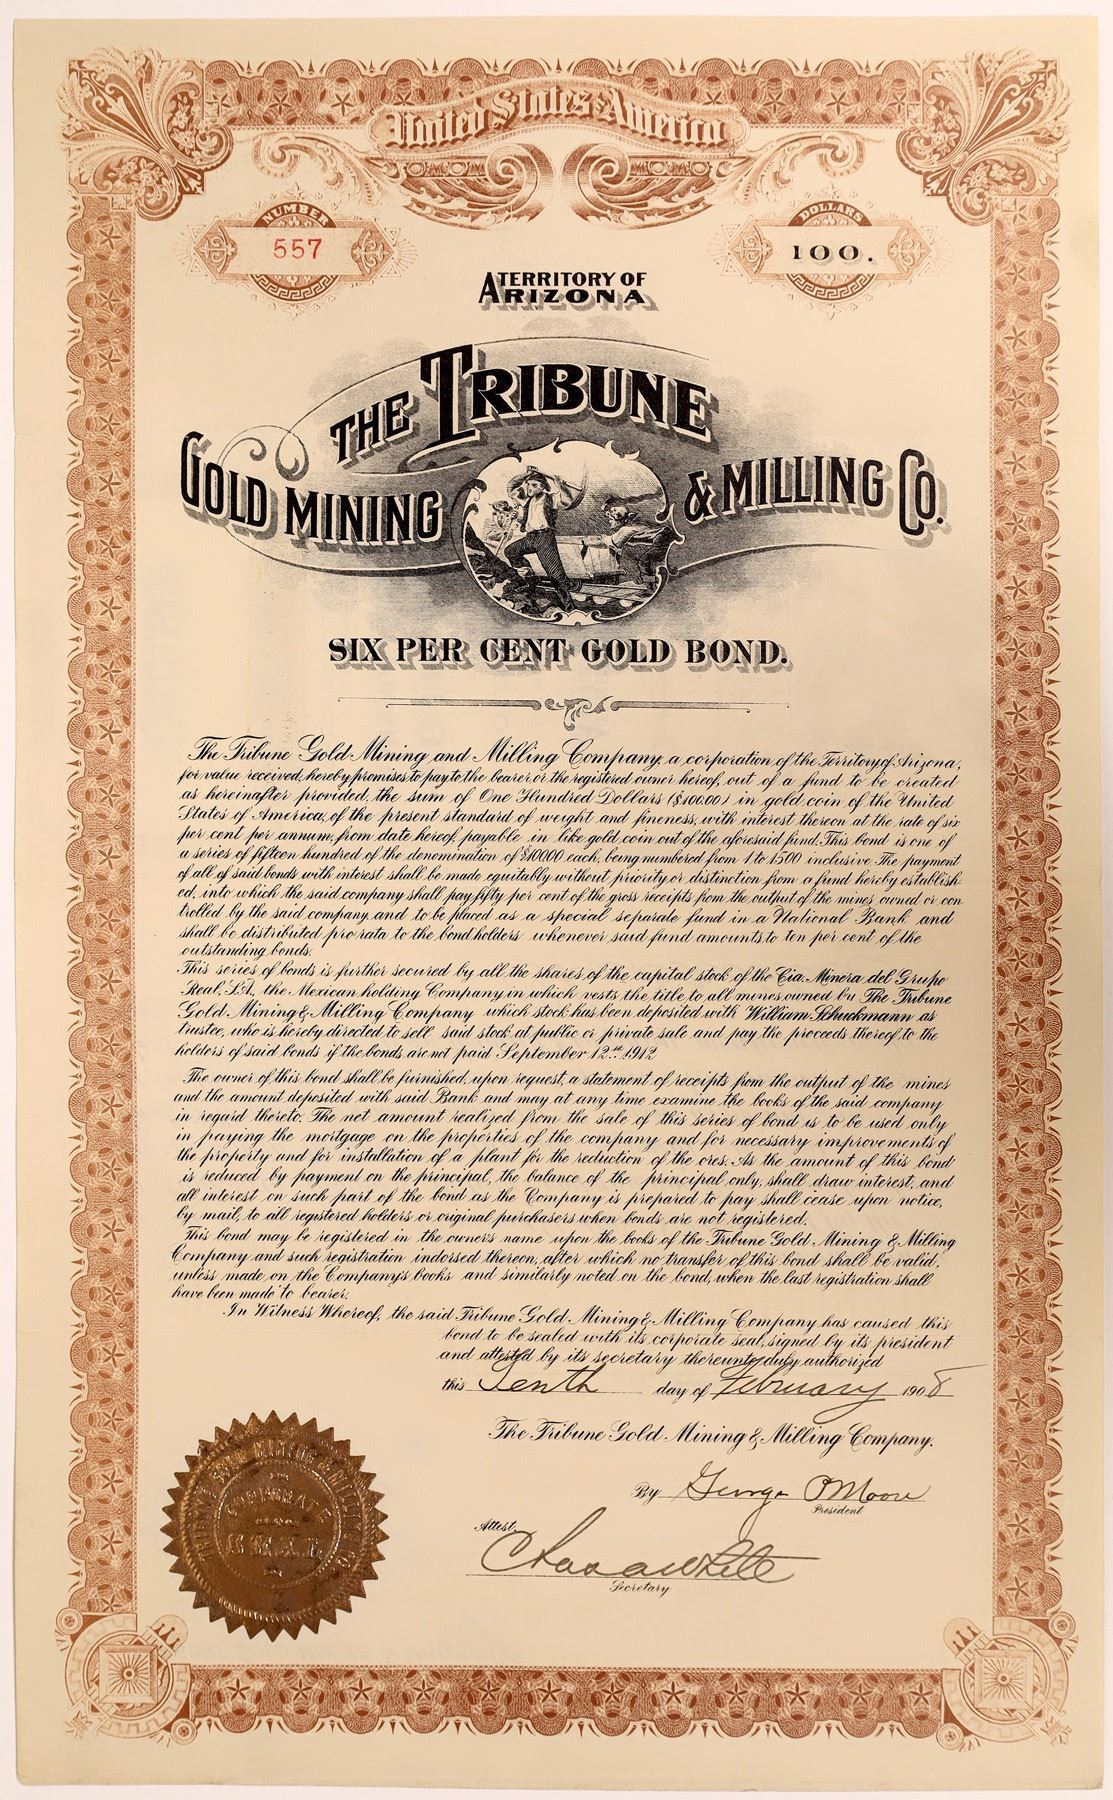 United States of America
NUMBER
557
DOLLARS
100.
TERRITORY OF
ARIZONA
THE TRIBUNE
GOLD MINING & MILLING CO.
SIX PER CENT GOLD BOND.
The Tribune Gold Mining and Milling Company, a corporation of the Territory of Arizona,
for value received, hereby promises to pay to the bearer or the registered owner hereof, out of a fund to be created
as hereinafter provided, the sum of One Hundred Dollars ($100.00) in gold coin of the United
States of America, of the present standard of weight and fineness, with interest thereon at the rate of six
per cent per annum, from date hereof, payable in like gold coin out of the aforesaid fund. This bond is one of
a series of fifteen hundred of the denomination of $100.00 each, being numbered from 1 to 1500 inclusive. The payment
of all of said bonds with interest shall be made equitably without priority or distinction from a fund hereby establish-
ed, into which the said company shall pay fifty per cent of the gross receipts from the output of the mines owned or con
trolled by the said company, and to be placed as a special separate fund in a National Bank and
shall be distributed pro rata to the bondholders whenever said fund amounts to ten per cent of the
outstanding bonds.
This series of bonds is further secured by all the shares of the capital stock of the Cia. Minera del Grupo
Real, S.A. the Mexican holding Company in which vests the title to all mines owned by The Tribune
Gold Mining & Milling Company which stock has been deposited with William Schuckmann as
trustee, who is hereby directed to sell said stock at public or private sale and pay the proceeds thereof to the
holders of said bonds if the bonds are not paid September 12th 1912
The owner of this bond shall be furnished, upon request, a statement of receipts from the output of the mines
and the amount deposited with said Bank and may at any time examine the books of the said company
in regard thereto. The net amount realized from the sale of this series of bond is to be used only
in paying the mortgage on the properties of the company and for necessary improvements of
the property and for installation of a plant for the reduction of the ores. As the amount of this bond
is reduced by payment on the principal, the balance of the principal only, shall draw interest, and
all interest on such part of the bond as the Company is prepared to pay shall cease upon notice,
by mail, to all registered holders or original purchasers when bonds are not registered.
This bond may be registered in the owner's name upon the books of the Tribune Gold Mining & Milling
Company and such registration indorsed thereon, after which no transfer of this bond shall be valid,
unless made on the Company's books and similarly noted on the bond, when the last registration shall
have been made to bearer.
In Witness Whereof, the said Tribune Gold Mining & Milling Company has caused this
bond to be sealed with its corporate seal, signed by its president
and attested by its secretary thereunto duly authorized
this Tenth day of February 1908
The Tribune Gold Mining & Milling Company.
By George P Moore
President
Attest
Chas A White
Secretary
TRIBUNE GOLD MINING & MILLING CO.
CORPORATE
SEAL